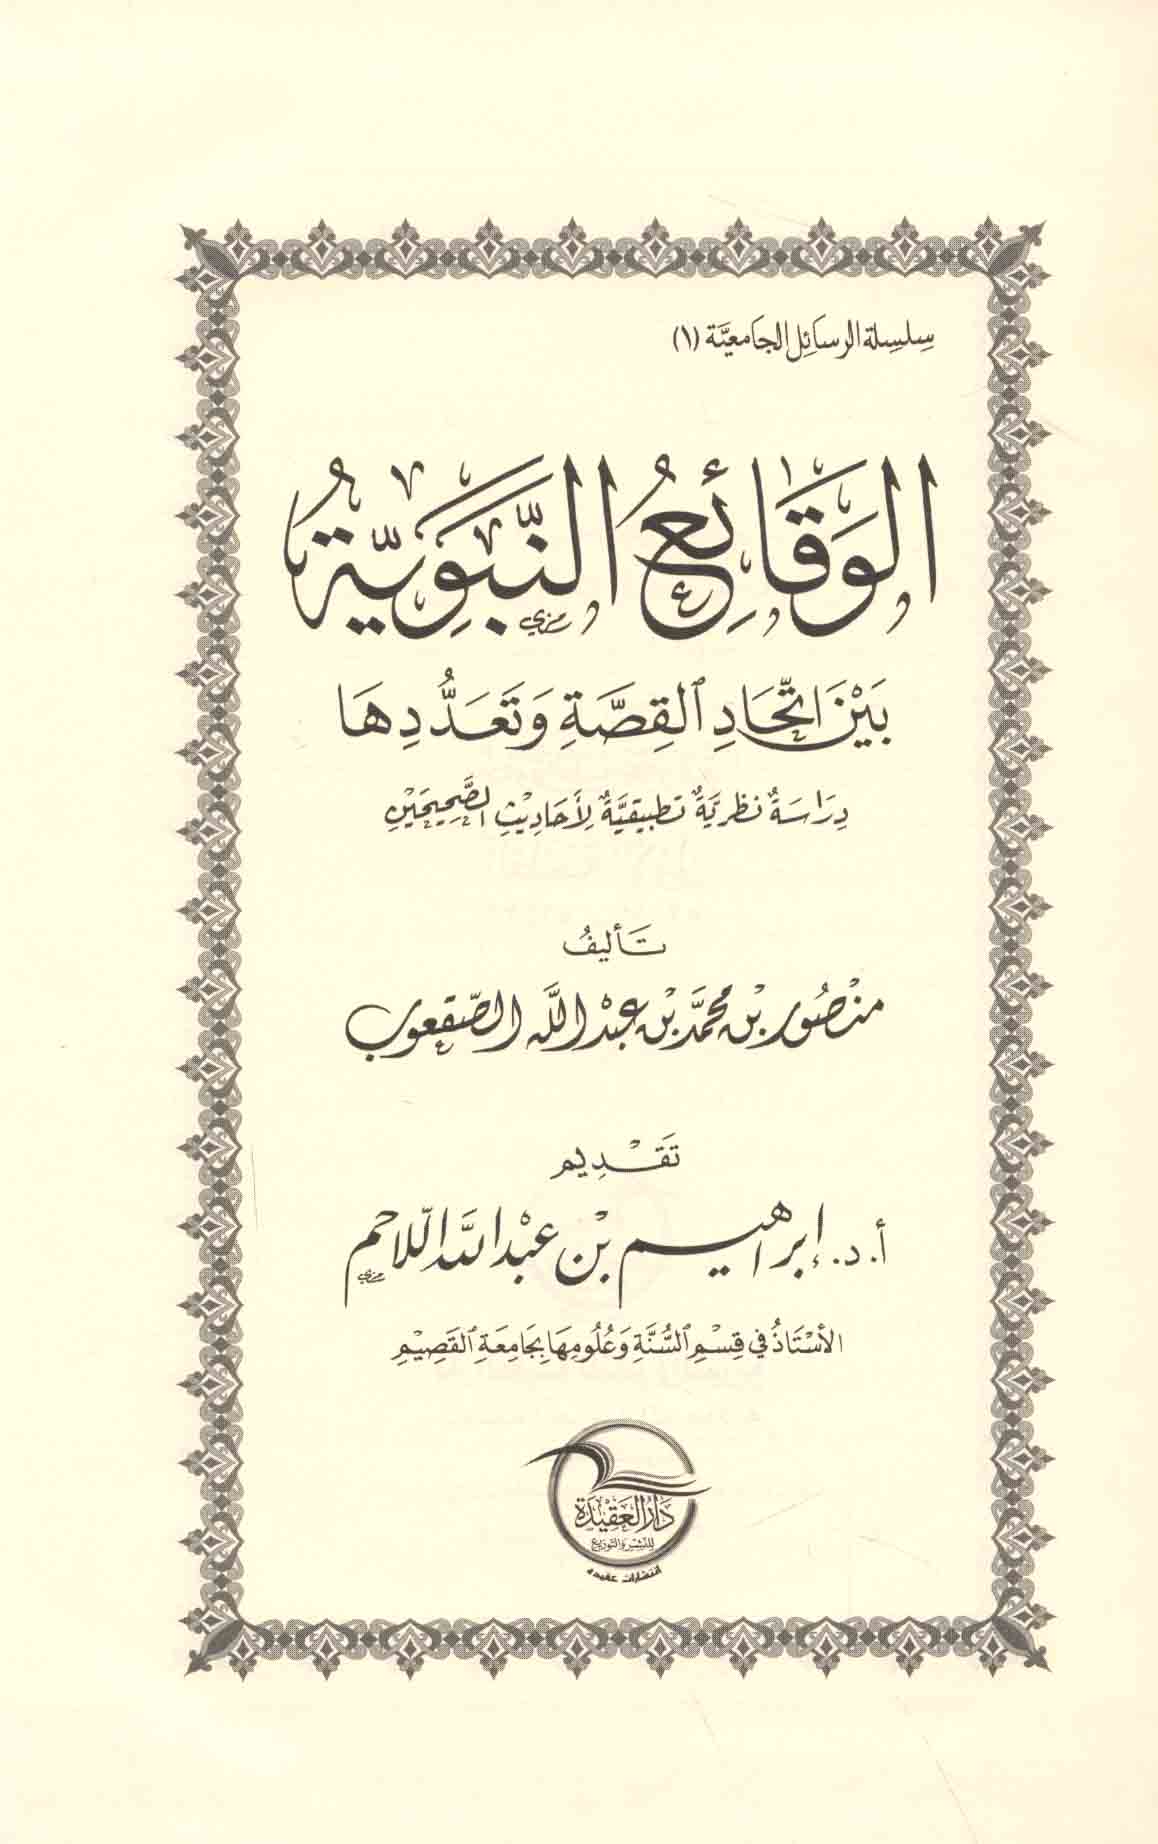 سلسلة الرسائل الجامعيَّة (١)
الوَقَائِعُ النَّبَوِيَّةُ
بَيْنَ اتِّحَادِ القِصَّةِ وَتَعَدُّدِهَا
دِرَاسَةٌ نظريَّةٌ تطبيقيَّةٌ لِأَحَادِيْثِ الصَّحِيحَيْنِ
تَأليفُ
منْصُور بْن محمَّد بْن عَبْد اللَّه الصّقعُوب
تَقْدِيم
أ. د. إبراهيم بْن عَبْد اللَّه اللّاحم
الأُسْتَاذُ في قِسْمِ السُّنَّةِ وَعُلُومِهَا بِجَامعَةِ القَصِيْمِ
دَارُ العَقِيْدَة
للنشر والتوزيع
انتشارات عقيده